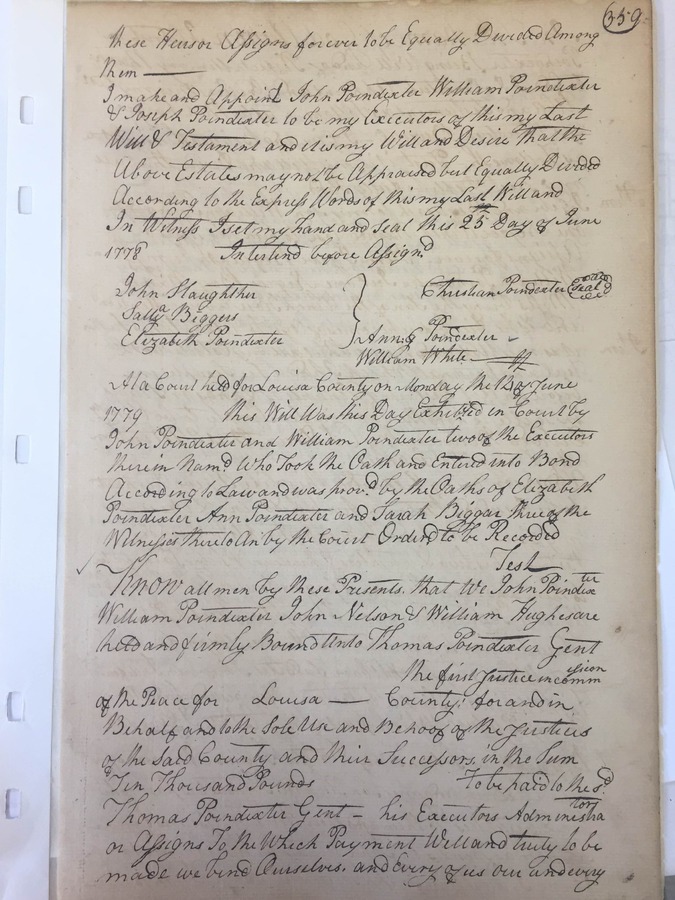 359
these Heirs or Assigns forever to be Equally Divided Among
them —
I make and Appoint John Poindexter William Poindexter
& Joseph Poindexter to be my Executors of this my Last
Will & Testament and it is my Will and Desire that the
Above Estates may not be Appraised but Equally Divided
According to the Express Words of this my Last Will and
In Witness I set my hand and seal this 25 Day of June
1778 Interlind before Assign.d
John Slaughther Christian Poindexter Seal
Sally Biggers
Elizabeth Poindexter Ann G Poindexter
William White
At a Court held for Louisa County on Monday the Day of June
1779 this Will Was this Day Exhibited in Court by
John Poindexter and William Poindexter two of the Executors
therein Nam.d Who Took the Oath and Entered into Bond
According to Law and was prov.d by the Oaths of Elizabeth
Poindexter Ann Poindexter and Sarah Biggar three of the
Witnesses thereto An by the Court Orderd to be Recorded
Test
Know all men by these Presents that We John Poindexter
William Poindexter John Nelson & William Hughes are
held and firmly Bound Unto Thomas Poindexter Gent
the first Justice in commission
of the Peace for Louisa — County for and in
Behalf and to the Sole Use and Behoof of the Justices
of the Said County and their Successors in the Sum
of Ten Thousand Pounds To be paid to the s.d
Thomas Poindexter Gent – his Executors Administrators
or Assigns To the Which Payment Well and truly to be
made we bind Ourselves and Every of us our and every